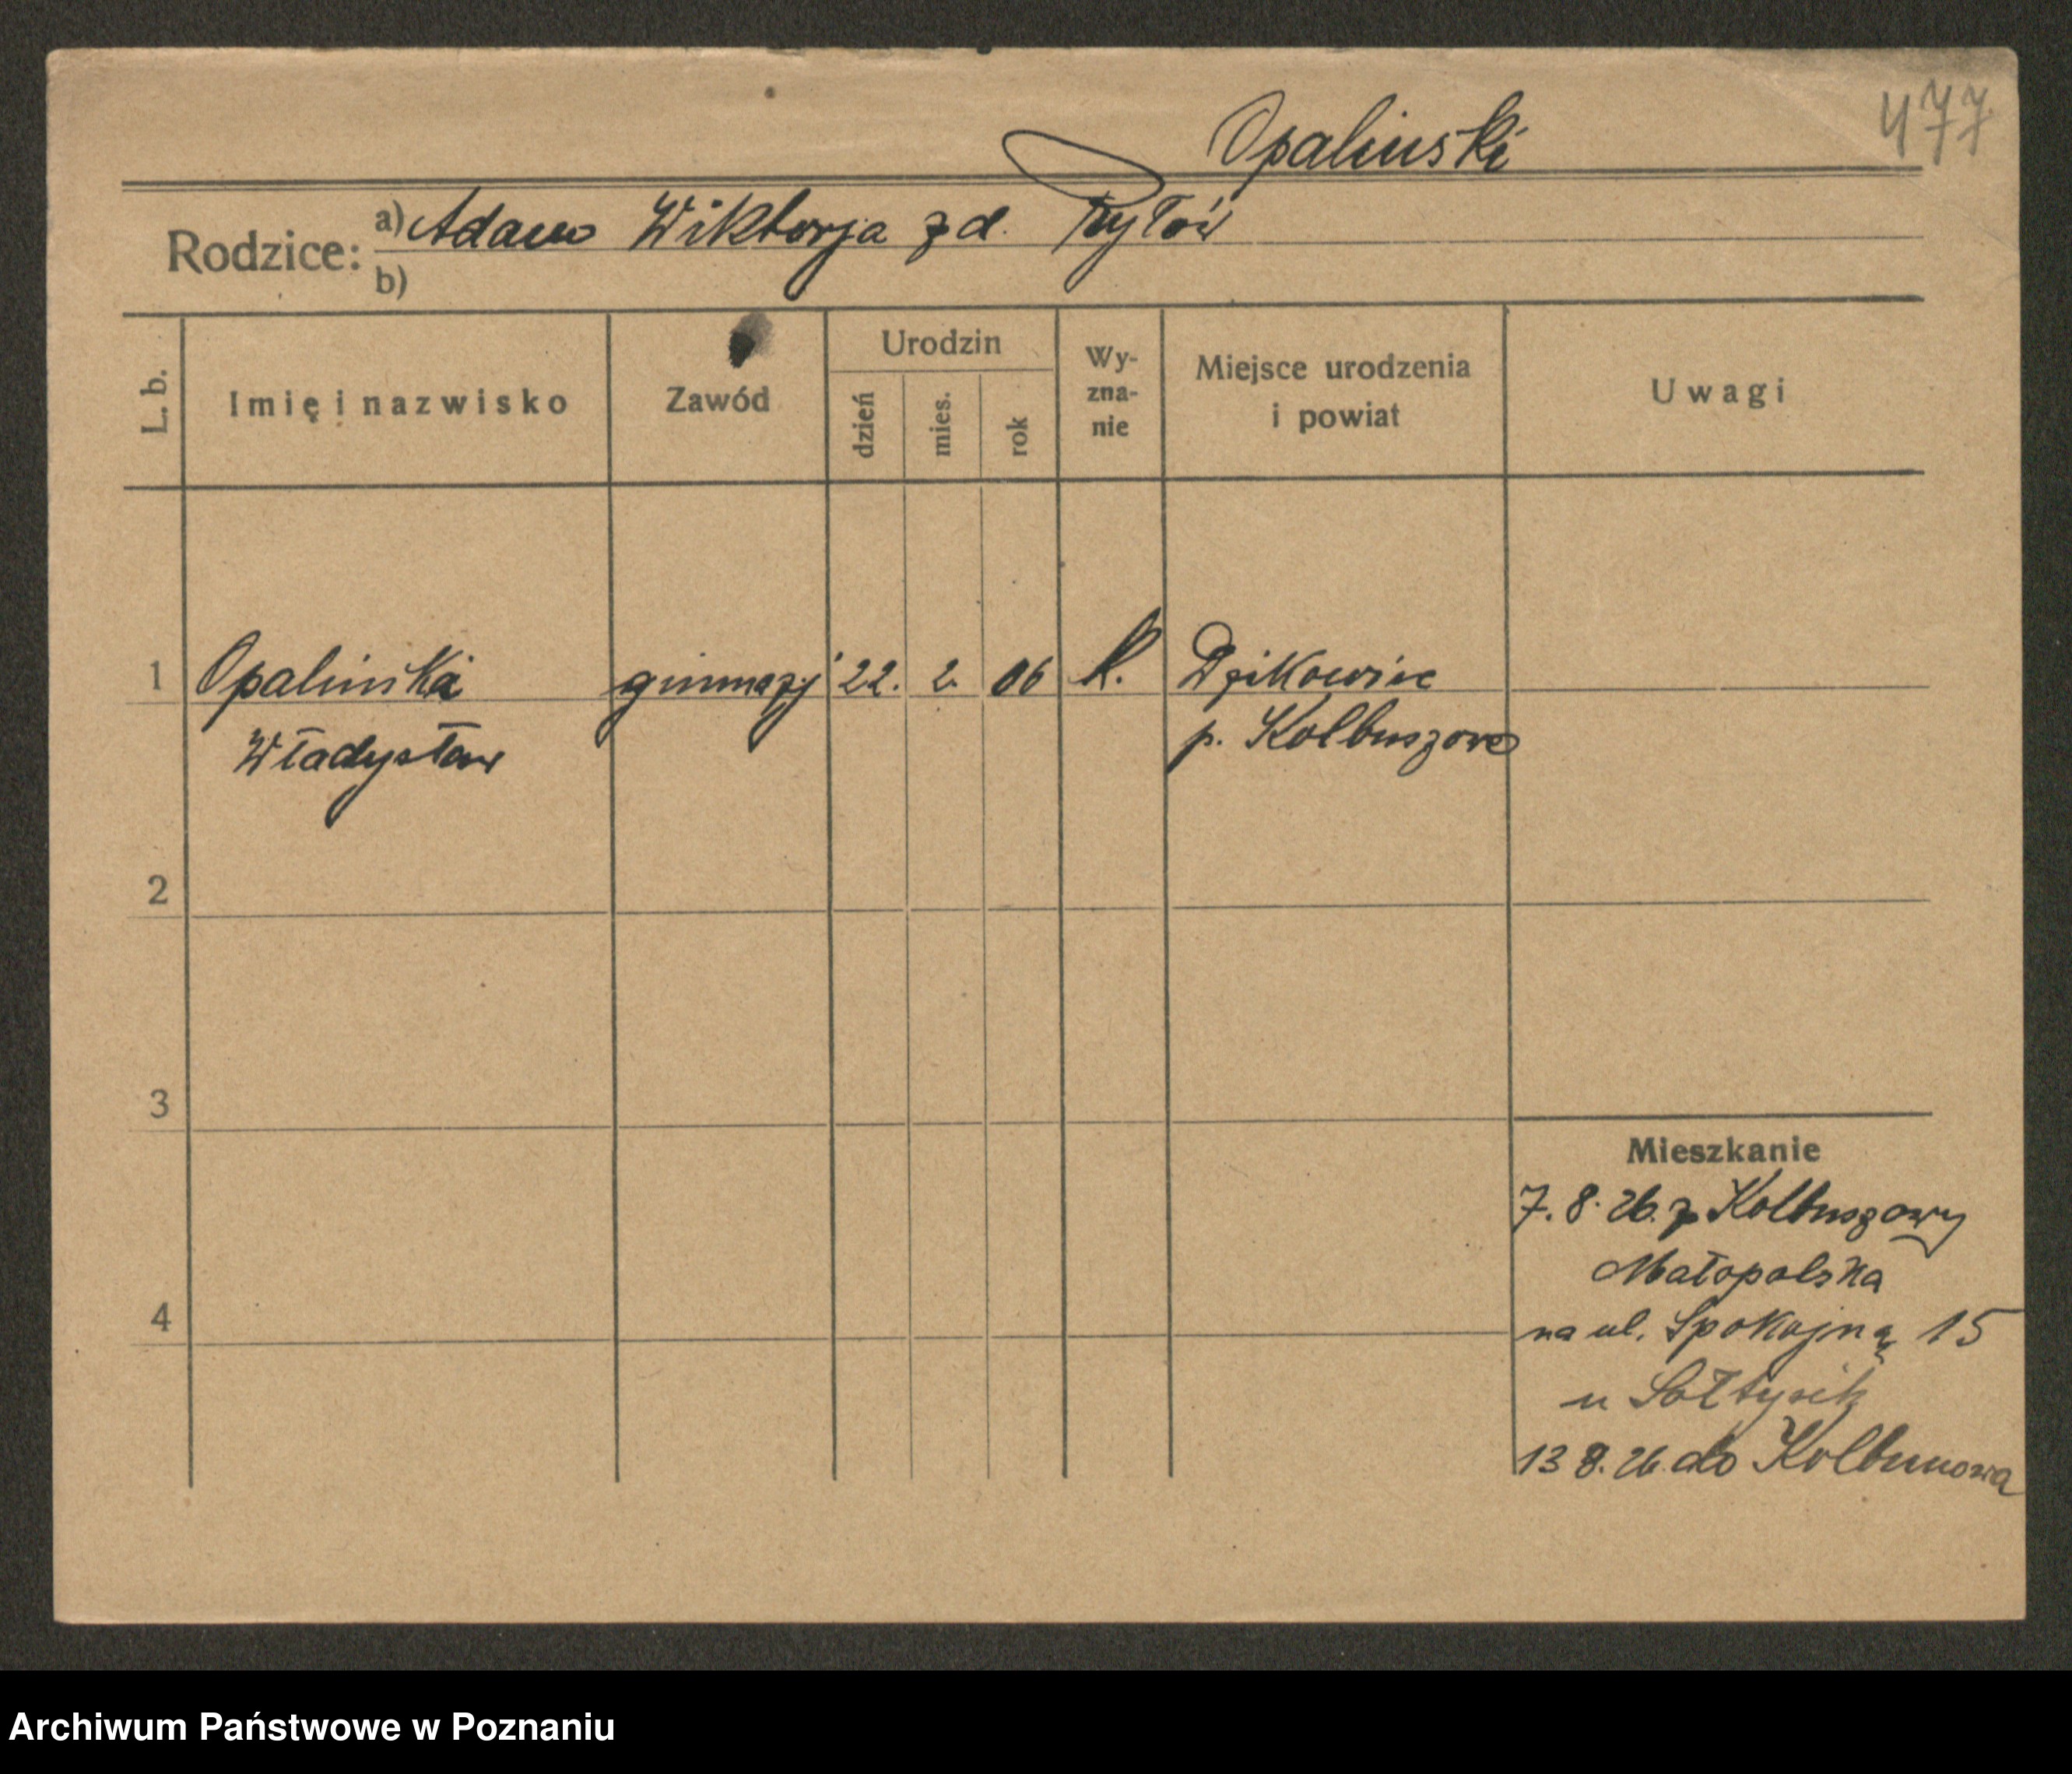 477
Opaliński
Rodzice: a) Adam Wiktorja z d. Rylów
b)
L. b. Imię i nazwisko Zawód Urodzin dzień mies. rok Wy-zna-nie Miejsce urodzenia i powiat Uwagi
1 Opaliński gimnazj 22. 2. 06 k. Dzikowiec
Władysław p. Kolbuszowa
2
3
Mieszkanie
7. 8. 26. z Kolbuszowy
Małopolska
4
na ul. Spokojną 15
u Sołtysik
13 8. 26. do Kolbuszowa
Archiwum Państwowe w Poznaniu